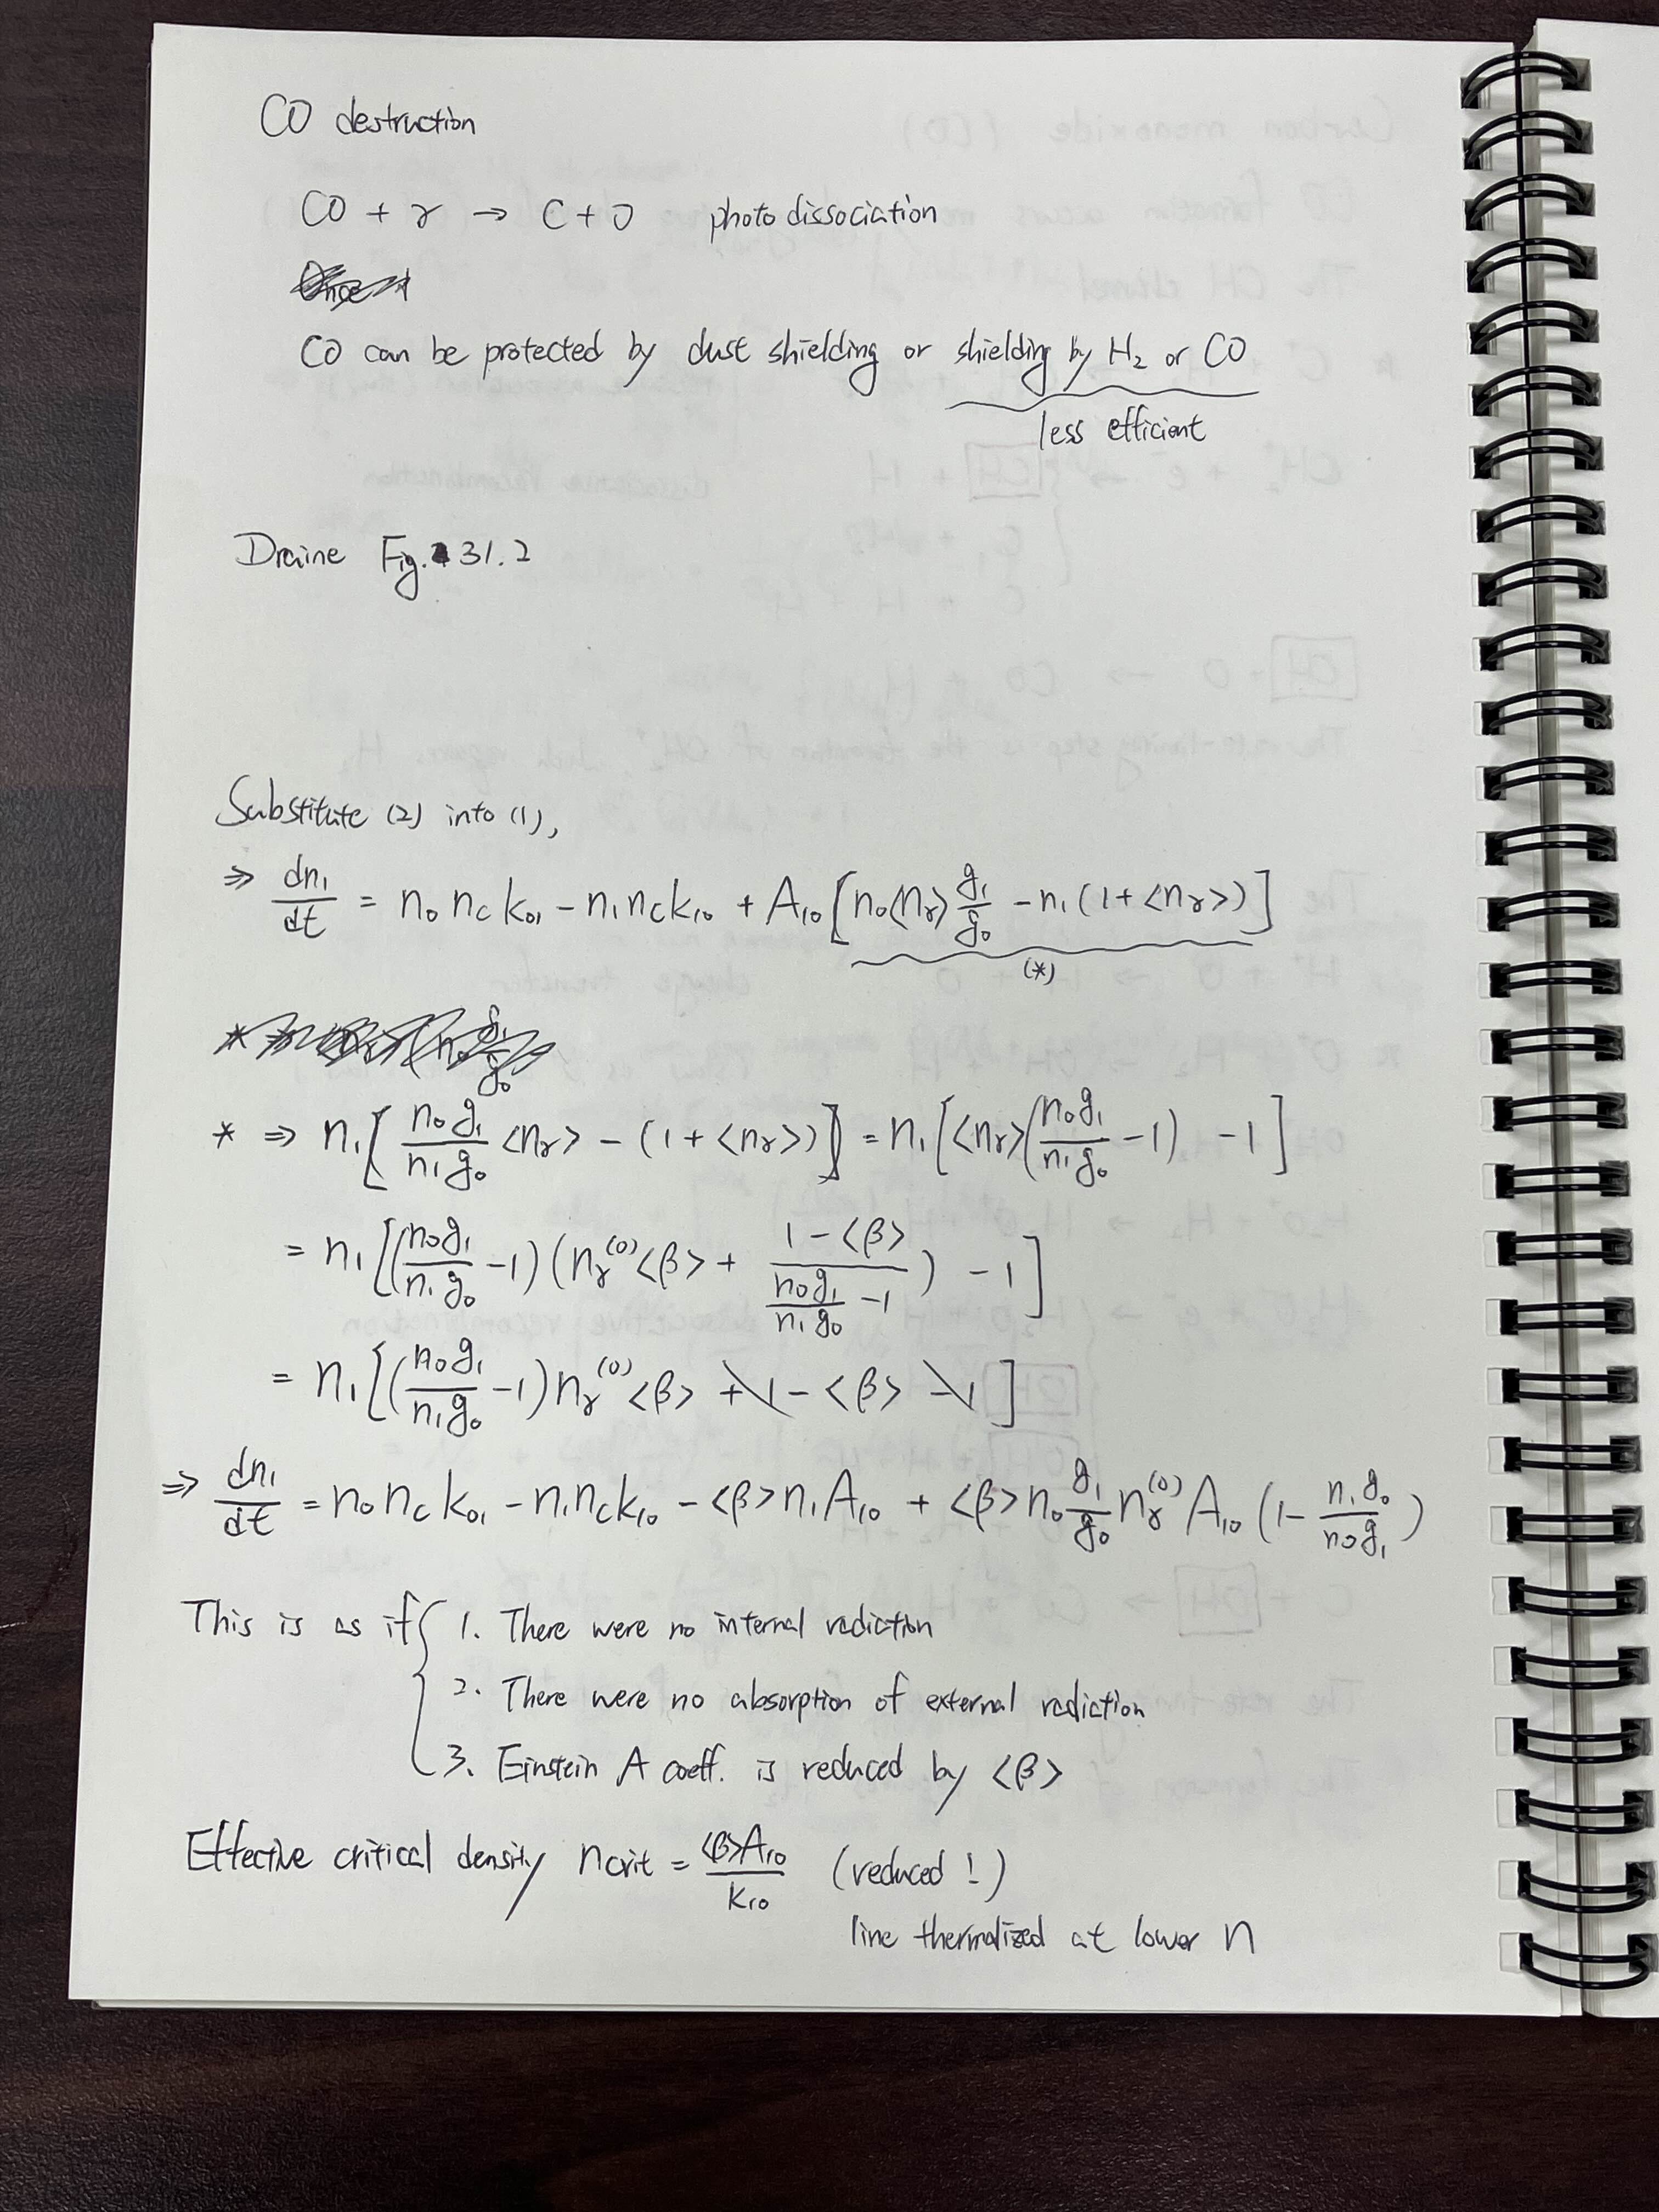 CO destruction
CO + γ → C + O photodissociation
CO can be protected by dust shielding or shielding by H₂ or CO
less efficient
Draine Fig. 31.2
Substitute (2) into (1),
⇒ dn₁/dt = n₀ n_c k₀₁ − n₁ n_c k₁₀ + A₁₀ [n₀⟨n_γ⟩ g₁/g₀ − n₁(1 + ⟨n_γ⟩)]
(*)
* ⇒ n₁[ n₀g₁/n₁g₀ ⟨n_γ⟩ − (1 + ⟨n_γ⟩)] = n₁[⟨n_γ⟩(n₀g₁/n₁g₀ − 1) − 1]
= n₁[(n₀g₁/n₁g₀ − 1)(n_γ⁽⁰⁾⟨β⟩ + (1 − ⟨β⟩)/(n₀g₁/n₁g₀ − 1)) − 1]
= n₁[(n₀g₁/n₁g₀ − 1)n_γ⁽⁰⁾⟨β⟩ + 1 − ⟨β⟩ − 1]
⇒ dn₁/dt = n₀ n_c k₀₁ − n₁n_c k₁₀ − ⟨β⟩n₁A₁₀ + ⟨β⟩n₀ g₁/g₀ n_γ⁽⁰⁾ A₁₀ (1 − n₁g₀/n₀g₁)
This is as if { 1. There were no internal radiation
2. There were no absorption of external radiation
3. Einstein A coeff. is reduced by ⟨β⟩
Effective critical density n_crit = ⟨β⟩A₁₀/k₁₀ (reduced !)
line thermalized at lower n